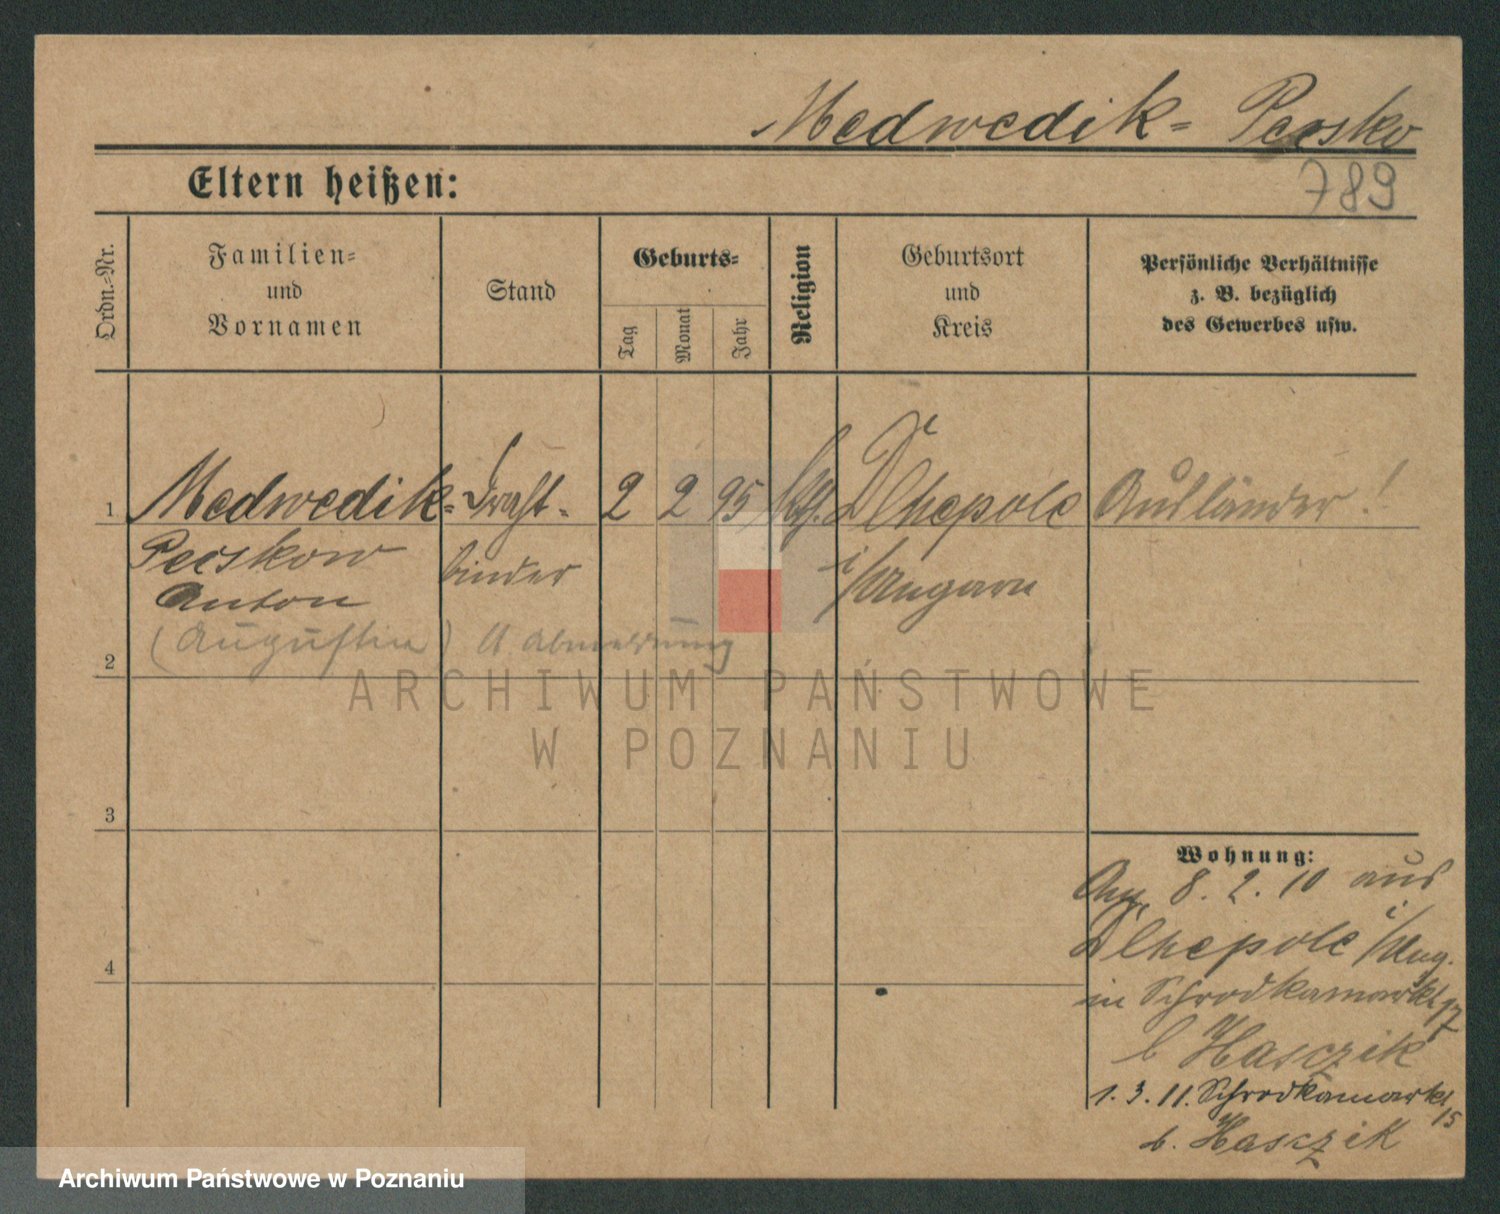 Medwedik- Pecsko
789
Eltern heißen:
Ordn.-Nr.
Familien-
und
Vornamen
Stand
Geburts-
Tag
Monat
Jahr
Religion
Geburtsort
und
Kreis
Persönliche Verhältnisse
z. B. bezüglich
des Gewerbes usw.
1 Medwedik- Draht- 2 2 95 Kth. Dlhepole Ausländer!
Pecskow binder i/Ungarn
Anton
(Augustin) Abmeldung
2
3
4
Wohnung:
Ang. 8. 2. 10 aus
Dlhepole i/Ung.
in Schrodkamarkt 17
b Hasczik
1. 3. 11. Schrodkamarkt 15
b. Hasczik
ARCHIWUM PAŃSTWOWE
W POZNANIU
Archiwum Państwowe w Poznaniu